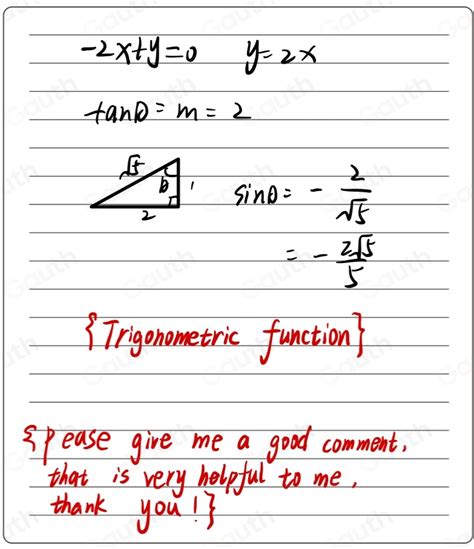 -2x+y=0 y=2x
tanθ=m=2
√5 θ 1
2
sinθ=-2/√5
=-2√5/5
{Trigonometric function}
{Please give me a good comment,
that is very helpful to me,
thank you!}